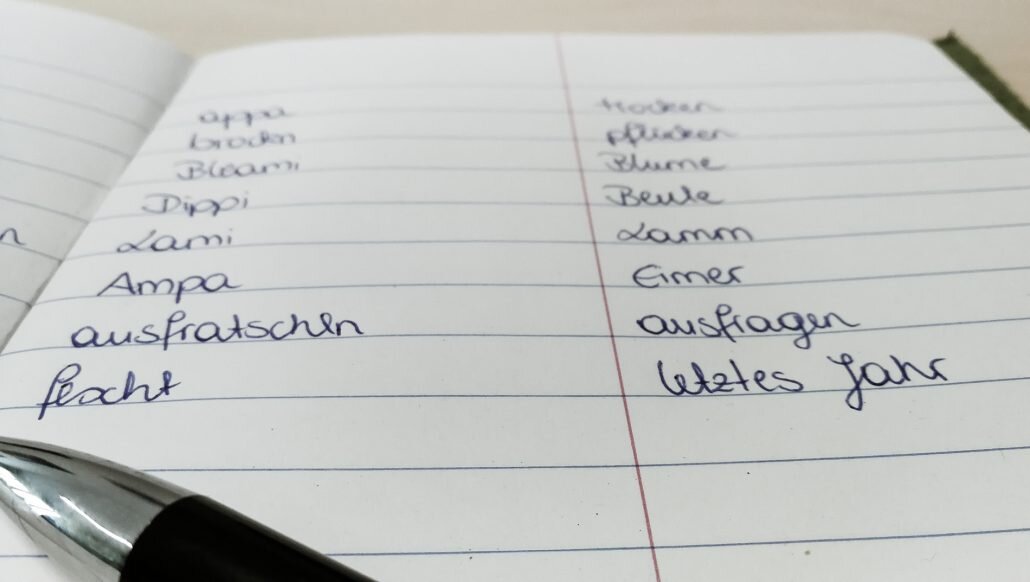 appa trocken
brockn pflücken
Bleami Blume
Dippi Beule
n Lami Lamm
Ampa Eimer
ausfratschln ausfragen
feacht letztes Jahr